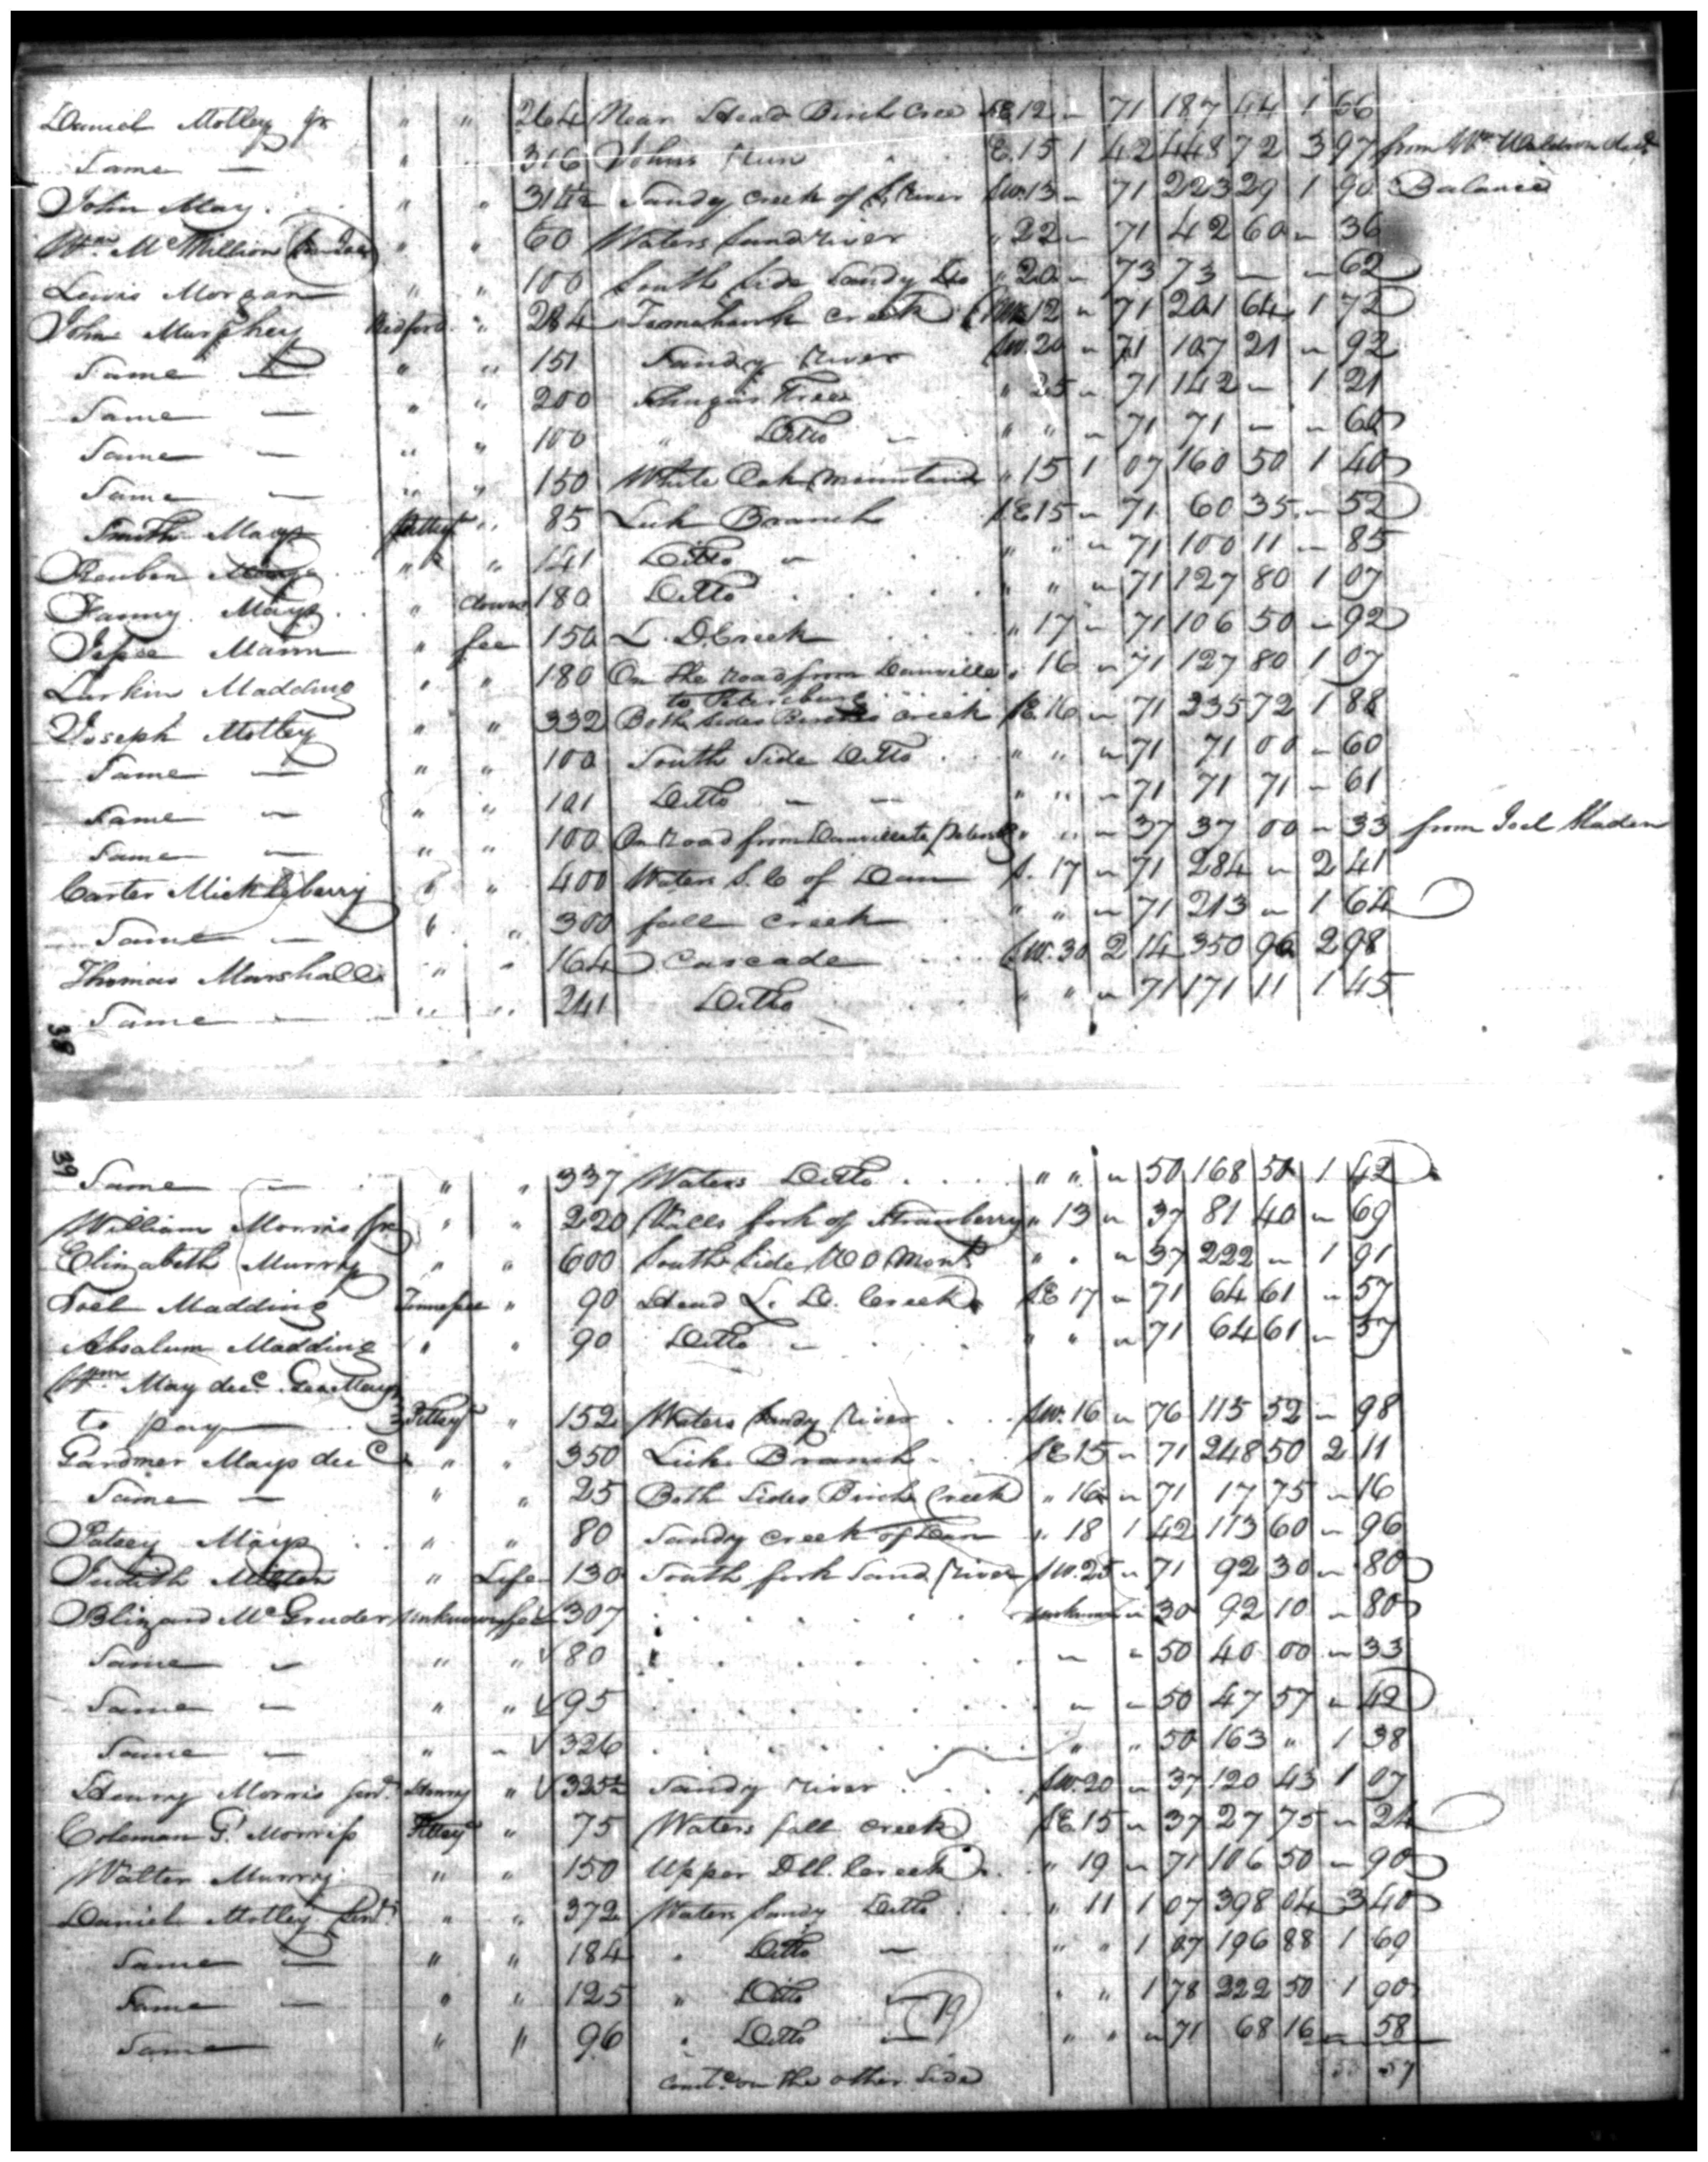 Daniel Motley Jr " " 264 Near Head Birch Cree SE 12 " 71 187 44 1 66
Same — " " 316 Johns Run E. 15 1 42 448 72 3 97 from Wm Waldron decd
John May " " 314½ Sandy Creek of S. River SW. 13 " 71 223 29 1 90 Balance
Wm McMillion " " 60 Waters Sand river " 22 " 71 42 60 " 36
Lewis Morgan " " 100 South Side Sandy Do " 20 " 73 73 — " 62
John Murphey Bedford " 284 Tomahawk Creek SW 12 " 71 201 64 1 72
Same — " " 151 Sandy River SW. 20 " 71 107 21 " 92
Same — " " 200 Trees " 25 " 71 142 " 1 21
Same — " " 100 " Ditto — " " " 71 71 — " 60
Same — " " 150 White Oak Mountain " 15 1 07 160 50 1 40
Smith Mays Pittsya " 85 Lick Branch SE 15 " 71 60 35 " 52
Reuben Mays " " 141 Ditto " " " " 71 100 11 " 85
Fanny Mays " dower 180 Ditto " " " 71 127 80 1 07
Jesse Mann " fee 150 L. D. Creek " 17 " 71 106 50 " 92
Larkin Madding " " 180 On the road from Danville " 16 " 71 127 80 1 07
to Petersburg
Joseph Motley " " 332 Both Sides Birches Creek SE 16 " 71 235 72 1 88
Same — " " 100 South Side Ditto " " " 71 71 00 " 60
Same — " " 101 Ditto — — " " " 71 71 71 " 61
Same — " " 100 On road from Danville to Petersbg " " " 37 37 00 " 33 from Joel Maden
Carter Mickleberry " " 400 Waters S. C of Dan S. 17 " 71 284 " 2 41
Same — " " 300 fall Creek " " " 71 213 " 1 64
Thomas Marshall " " 164 Cascade SW. 30 2 14 350 96 2 98
Same — " " 241 Ditto " " " 71 171 11 1 45
38
39
Same — " " 337 Waters Ditto " " " 50 168 50 1 42
William Morris Jr " " 220 Walls fork of Strawberry " 13 " 37 81 40 " 69
Elizabeth Murray " " 600 South Side W O Mont " " " 37 222 " 1 91
Joel Madding Tinnessee " 90 Head L. D. Creek SE 17 " 71 64 61 " 57
Absalum Madding " " 90 Ditto — " " " 71 64 61 " 57
Wm May decd. Geo Mays
to pay — Pittsya " 152 Waters Sandy River SW. 16 " 76 115 52 " 98
Gardner Mays decd " " 350 Lick Branch SE 15 " 71 248 50 2 11
Same — " " 25 Both Sides Birch Creek " 16 " 71 17 75 " 16
Patsey Mays " " 80 Sandy Creek of Dan " 18 1 42 113 60 " 96
Judith Milton " Life 130 South fork Sand River SW. 25 " 71 92 30 " 80
Blizard McGruder unknown fee 307 unknown " 30 92 10 " 80
Same " " " 80 " " 50 40 00 " 33
Same — " " 95 " " 50 47 57 " 42
Same — " " 326 " " 50 163 " 1 38
Henry Morris Senr. Henry " 325½ Sandy River SW. 20 " 37 120 43 1 07
Coleman G. Morriss Pittsya " 75 Waters fall Creek SE 15 " 37 27 75 " 24
Walter Murray " " 150 Upper Dbl. Creek " 19 " 71 106 50 " 90
Daniel Motley Senr. " " 372 Waters Sandy Ditto " 11 1 07 398 04 3 40
Same — " " 184 " Ditto — " " 1 07 196 88 1 69
Same — " " 125 " Ditto — " " 1 78 222 50 1 90
Same " " 96 " Ditto — " " " 71 68 16 " 58
Contd. on the other Side 57